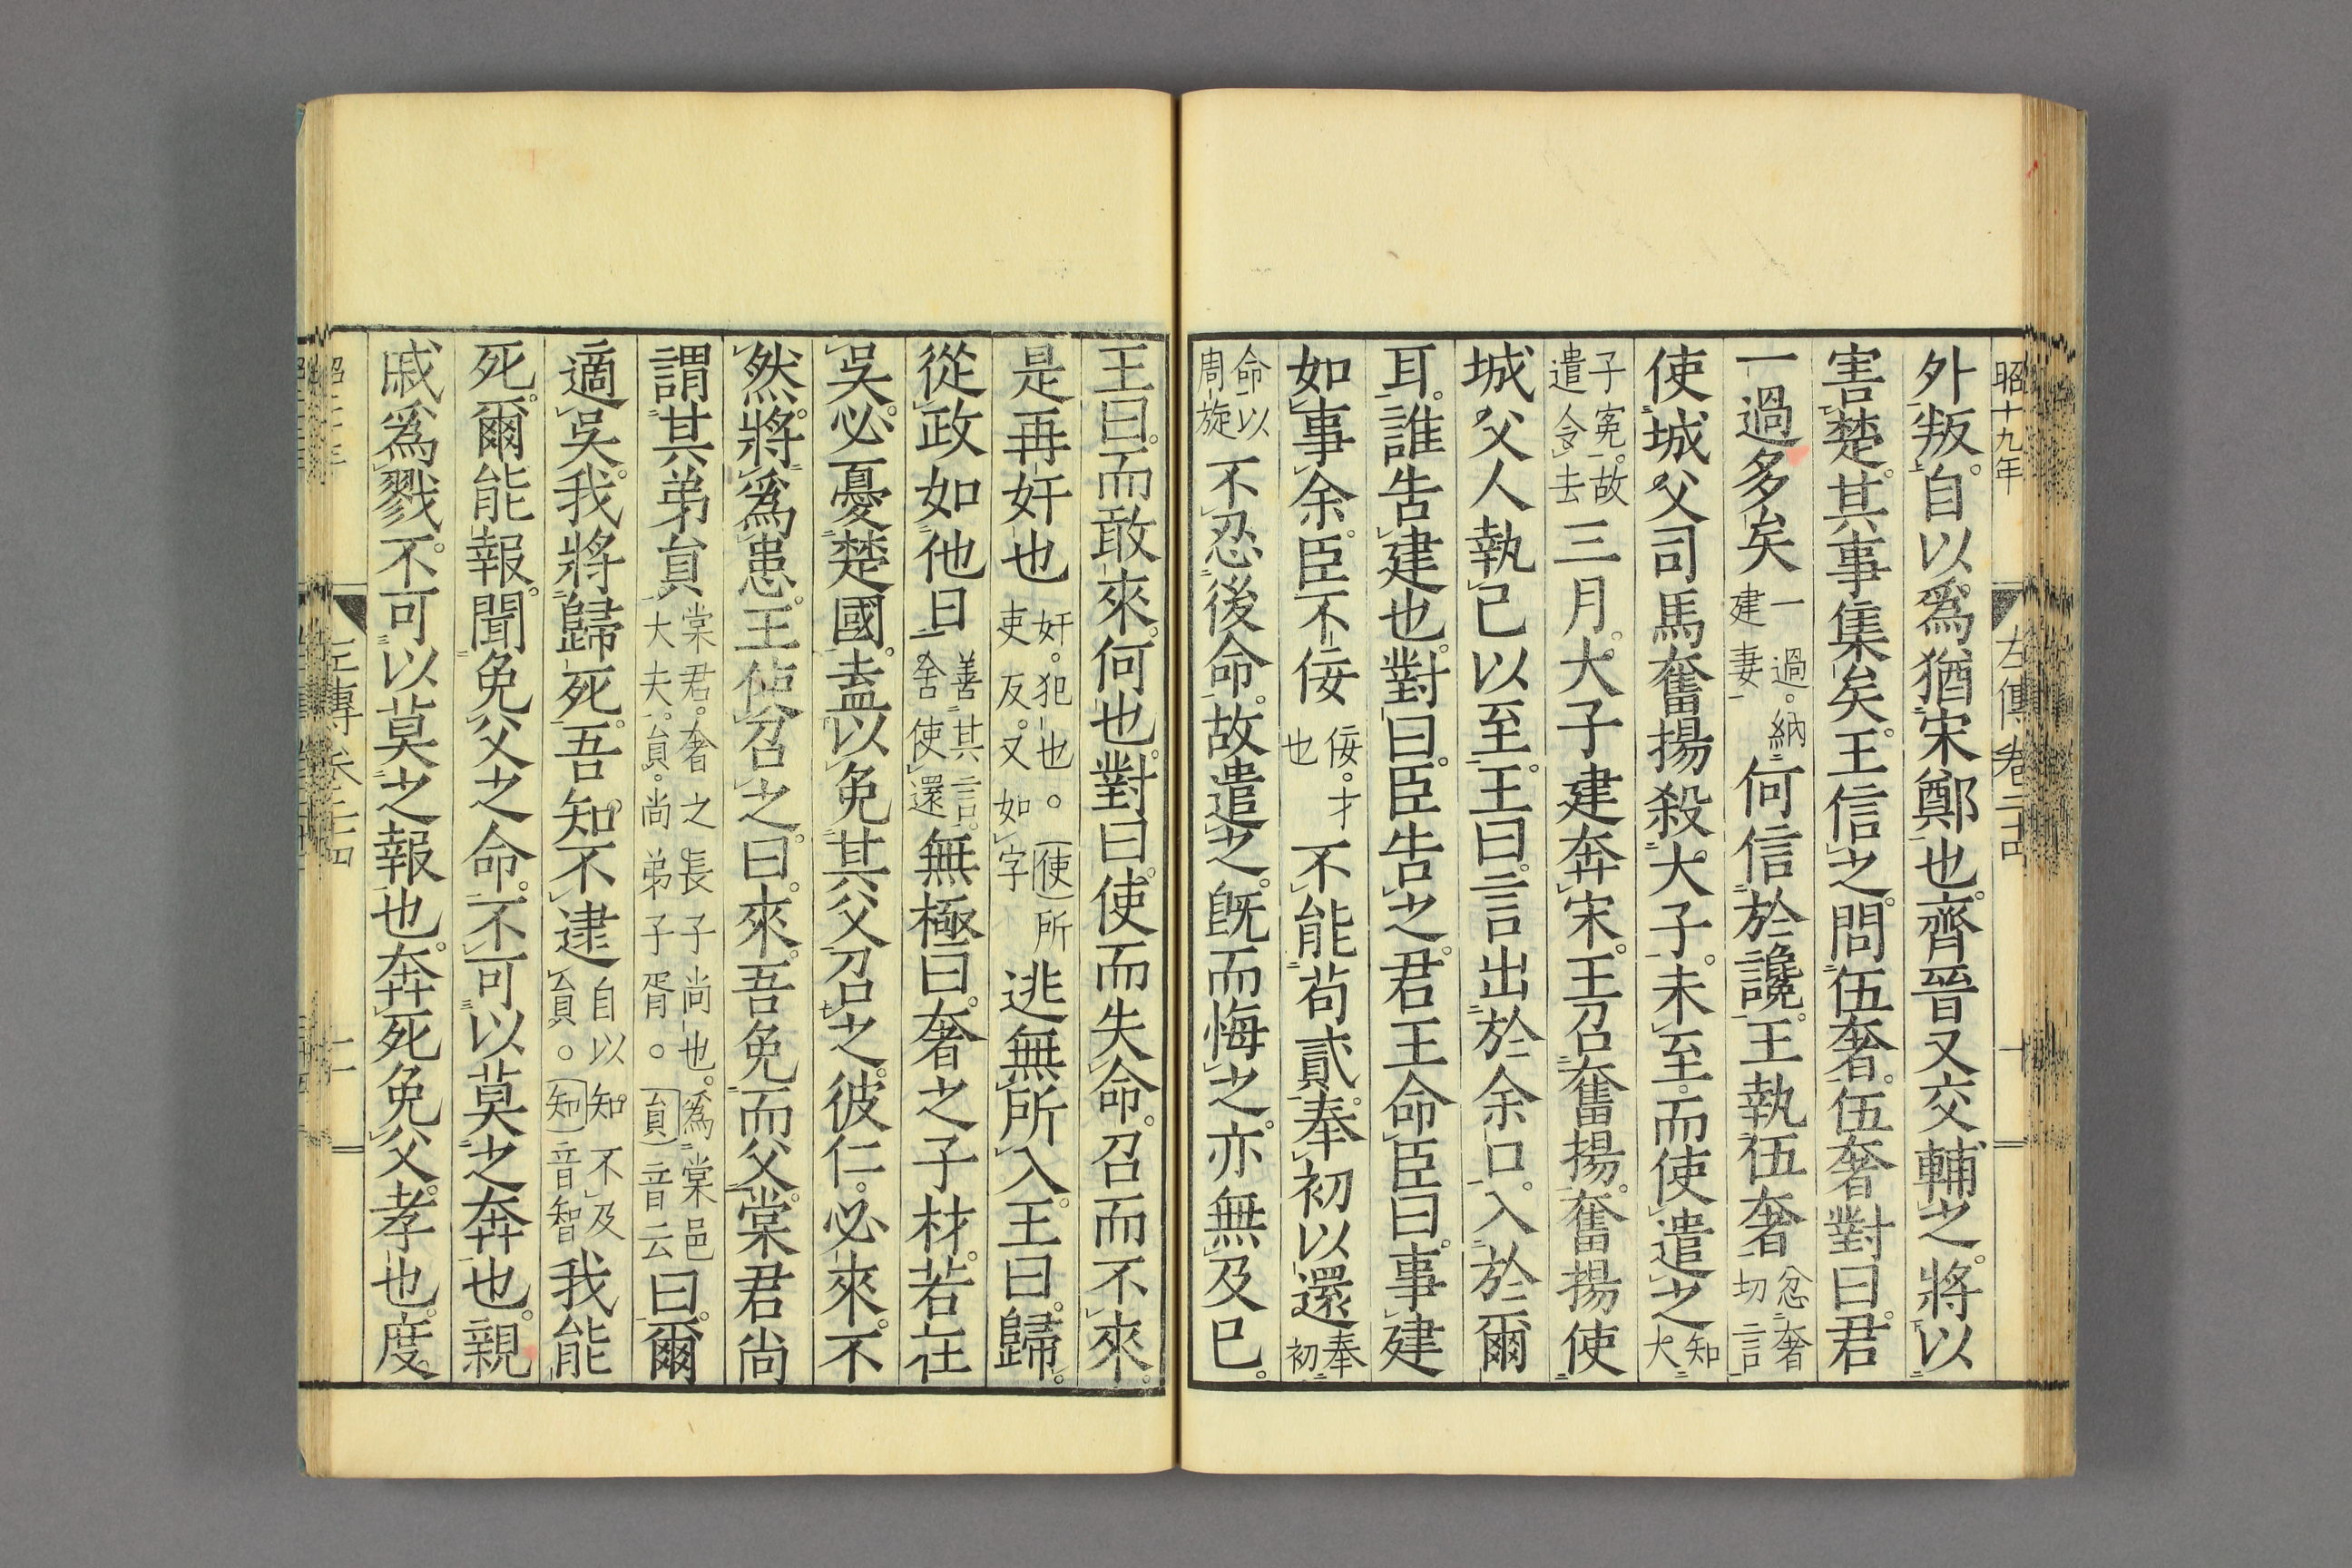 昭十九年 左傳卷二十四 十
外叛自以爲猶宋鄭也齊晉又交輔之將以
害楚其事集矣王信之問伍奢伍奢對曰君
一過多矣一過納建妻何信於讒王執伍奢忿奢切言
使城父司馬奮揚殺大子未至而使遣之知大
子寃故遣令去三月大子建奔宋王召奮揚奮揚使
城父人執己以至王曰言出於余口入於爾
耳誰告建也對曰臣告之君王命臣曰事建
如事余臣不佞佞才也不能苟貳奉初以還奉初
命以周旋不忍後命故遣之既而悔之亦無及已
王曰而敢來何也對曰使而失命召而不來
是再奸也奸犯也。使所吏反又如字逃無所入王曰歸
從政如他日善其言舍使還無極曰奢之子材若在
吳必憂楚國盍以免其父召之彼仁必來不
然將爲患王使召之曰來吾免而父棠君尚
謂其弟員棠君奢之長子尚也爲棠邑大夫員尚弟子胥。員音云曰爾
適吳我將歸死吾知不逮自以知不及員。知音智我能
死爾能報聞免父之命不可以莫之奔也親
戚爲戮不可以莫之報也奔死免父孝也度